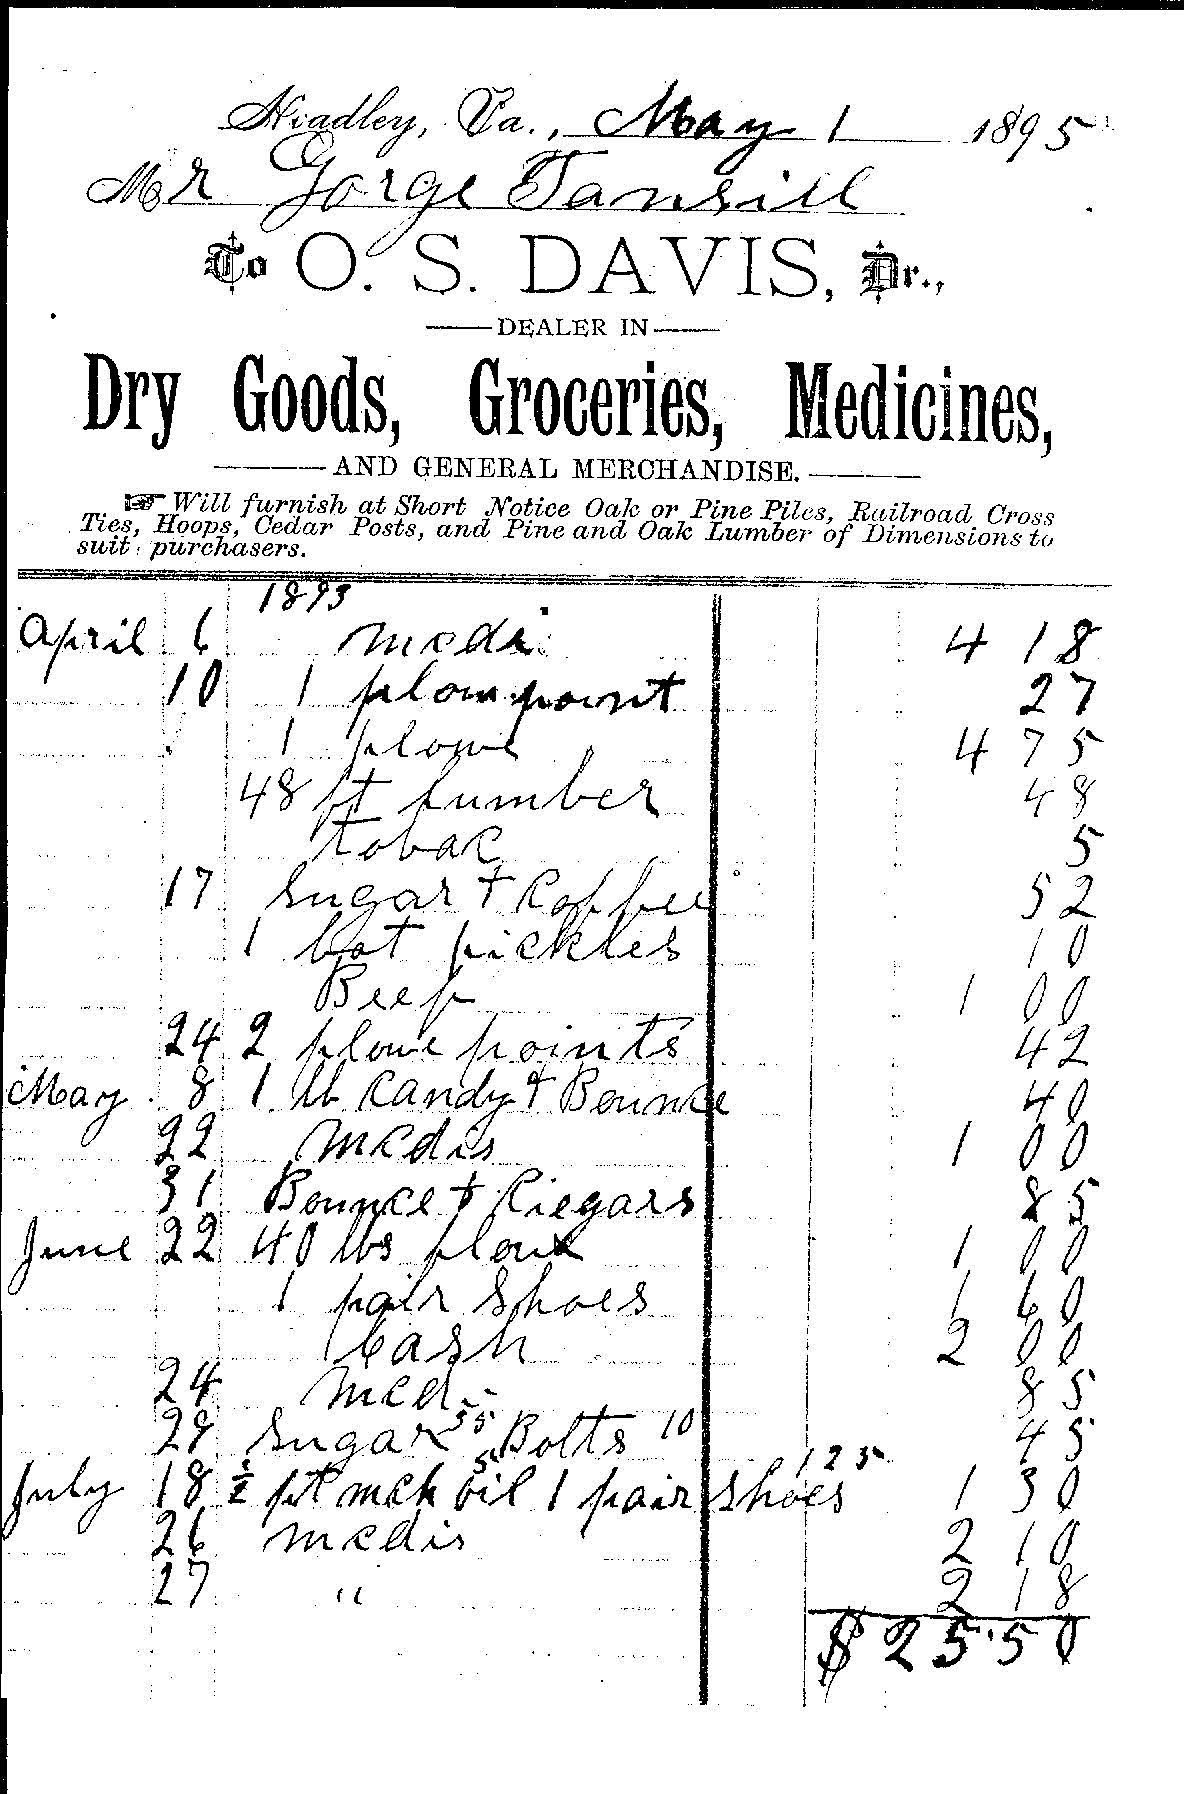 Hiadley, Va., May 1 1895
Mr Gorge Tansill
To O. S. DAVIS, Dr.,
DEALER IN
Dry Goods, Groceries, Medicines,
AND GENERAL MERCHANDISE.
☞ Will furnish at Short Notice Oak or Pine Piles, Railroad Cross
Ties, Hoops, Cedar Posts, and Pine and Oak Lumber of Dimensions to
suit purchasers.
1893
April 6 medi 4 18
10 1 plow point 27
1 plowe 4 75
48 ft lumber 48
tobac 5
17 Sugar + Coffee 52
1 bot pickles 10
Beef 1 00
24 2 plowe points 42
May 8 1 lb Candy + Bounce 40
22 medis 1 00
31 Bounce + Ciegars 85
June 22 40 lbs flour 1 00
1 pair Shoes 1 60
Cash 2 00
24 med 85
28 Sugar 35 Bolts 10 45
July 18 ½ pt mch oil 5 1 pair shoes 1 25 1 30
26 medis 2 10
27 " 2 18
$ 25.50